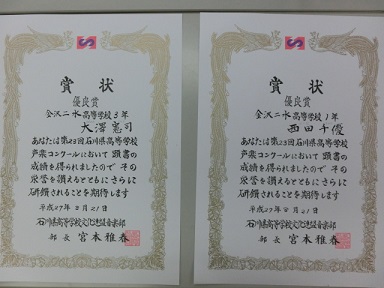 賞状
優良賞
金沢二水高等学校3年
大澤憲司
あなたは第23回石川県高等学校
声楽コンクールにおいて 頭書の
成績を得られましたので その
栄誉を讃えるとともにさらに
研鑽されることを期待します
平成27年2月21日
石川県高等学校文化連盟音楽部
部長 宮本雅春
賞状
優良賞
金沢二水高等学校1年
西田千優
あなたは第23回石川県高等学校
声楽コンクールにおいて 頭書の
成績を得られましたので その
栄誉を讃えるとともにさらに
研鑽されることを期待します
平成27年2月21日
石川県高等学校文化連盟音楽部
部長 宮本雅春